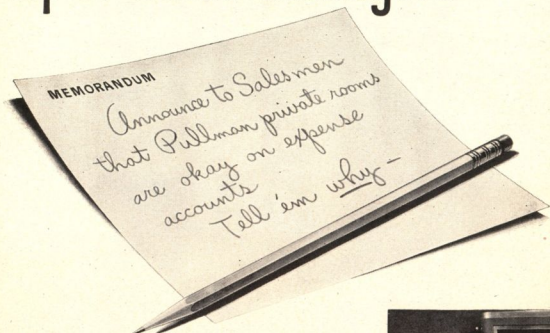 MEMORANDUM
Announce to Salesmen
that Pullman private rooms
are okay on expense
accounts
Tell 'em why—